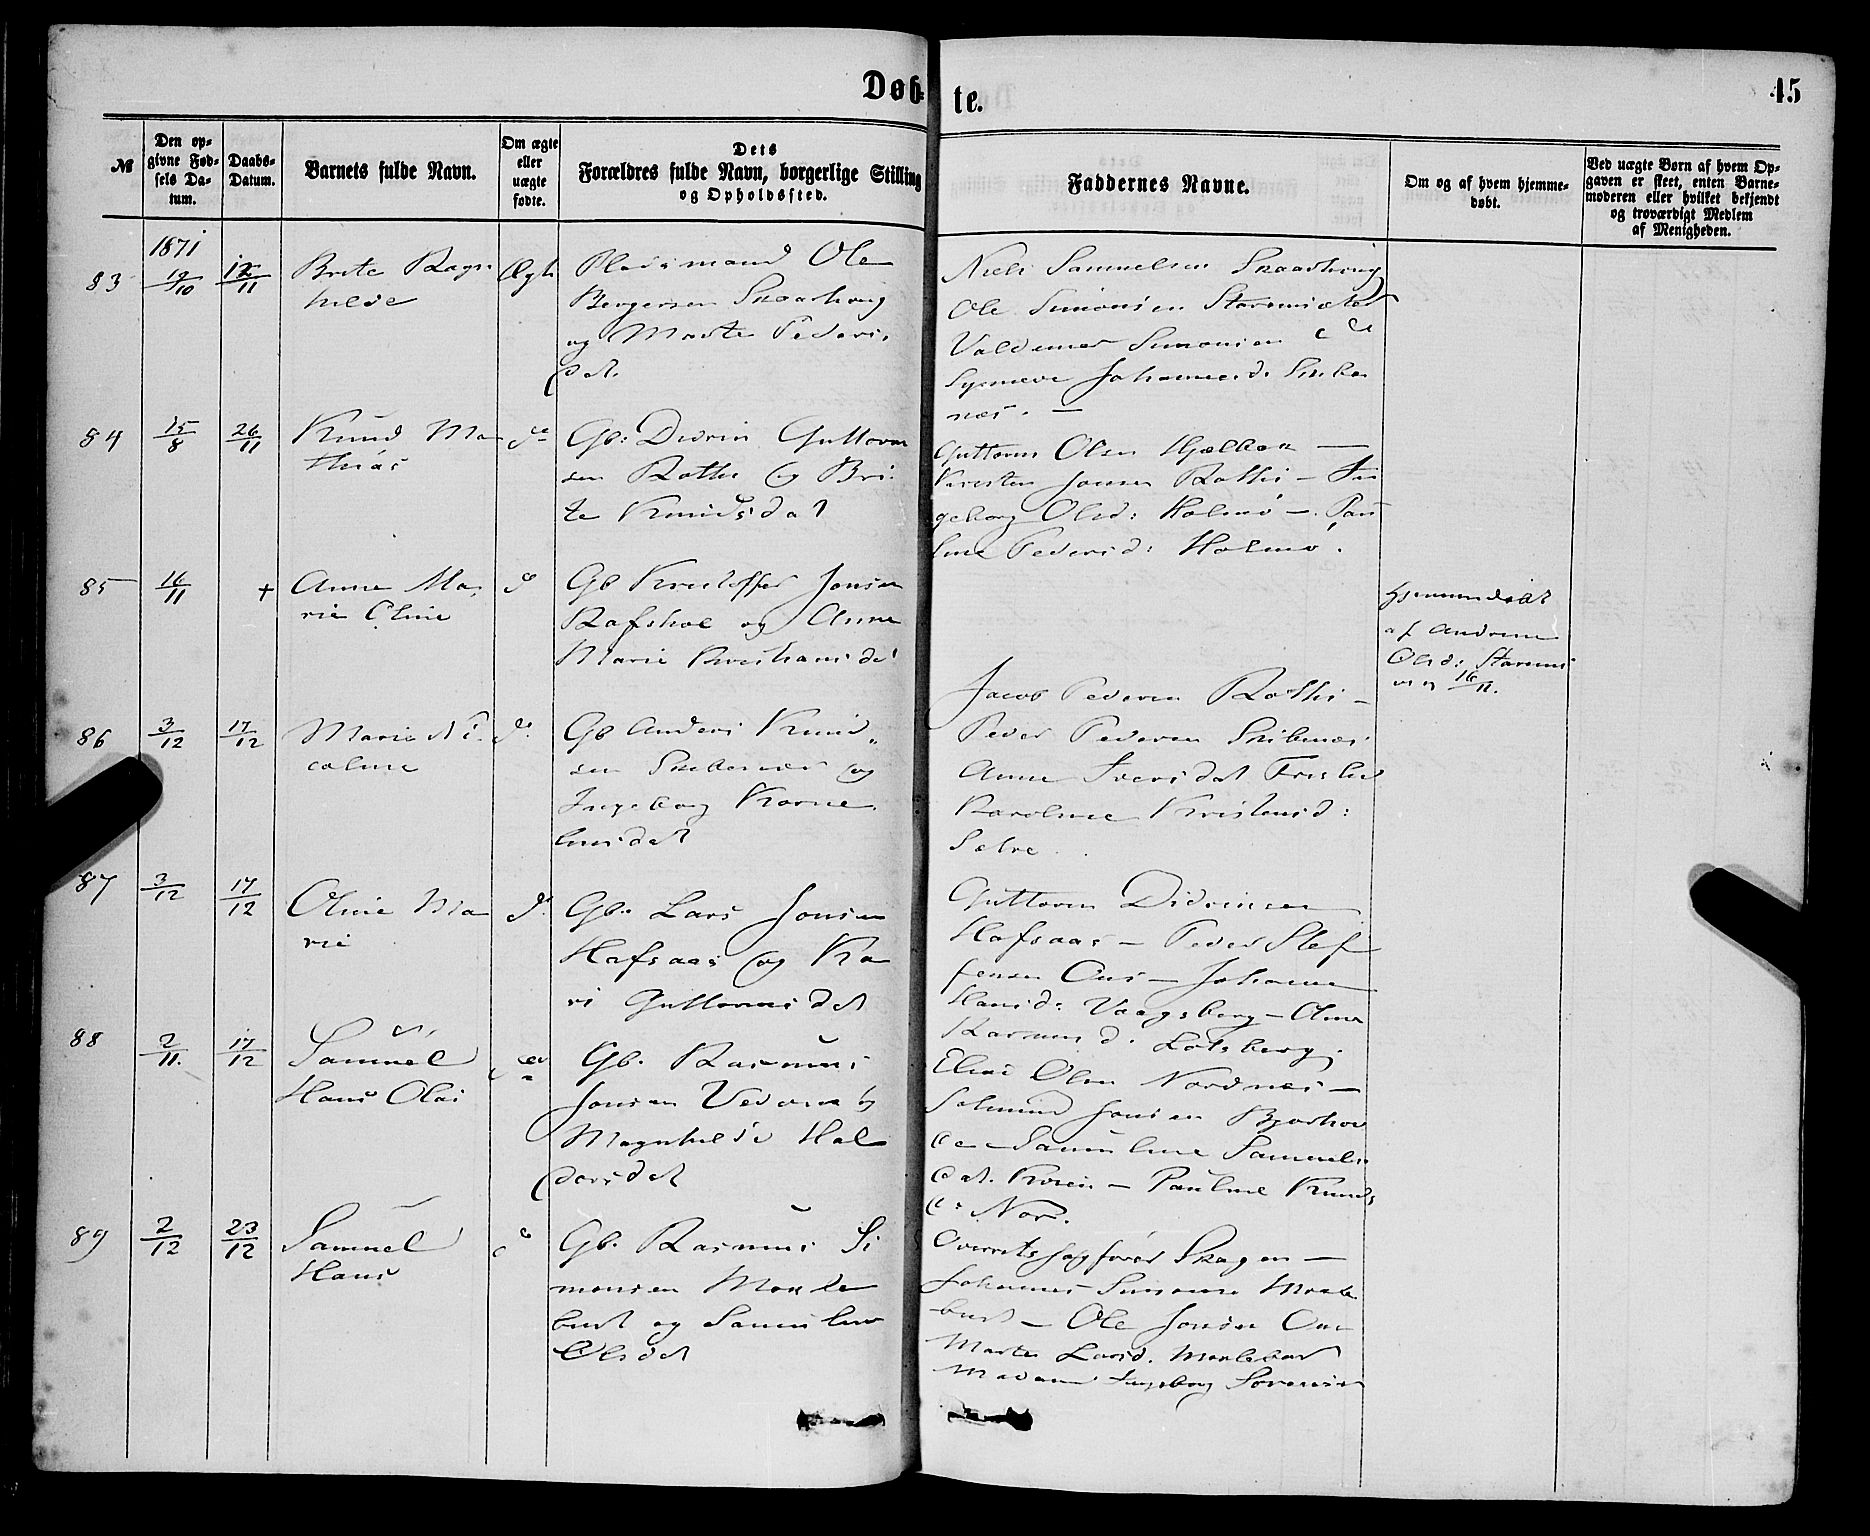 Døb-
te.
45
№
Den op-
givne Fød-
sels Da-
tum.
Daabs-
Datum.
Barnets fulde Navn.
Om ægte
eller
uægte
fødte.
Dets
Forældres fulde Navn, borgerlige Stilling
og Opholdssted.
Faddernes Navne.
Om og af hvem hjemme-
døbt.
Ved uægte Børn af hvem Op-
gaven er skeet, enten Barne-
moderen eller hvilket bekjendt
og troværdigt Medlem
af Menigheden.
1871
83
/10
12/11
Brite Ragn
hilde
Ægte
Pladsmand Ole
Bergersen
og Marte Peders
dat.
Niels Samuelsen
Ole Simonsen
Valdemar Simonsen
Synneve Johannesd.
næs. —
84
15/8
26/11
Knud Ma
thias
do
Gb: Didrik Guttorm
sen Rothi og Bri
te Knudsdat
Guttorm Olsen —
Kristen Jonsen Rothi — In
geborg Olsd: Holmø — Pau
line Pedersd: Holmø.
85
16/11
+
Anne Ma
rie Oline
do
Gb Kristoffer Jonsen
og Anne
Marie
Hjemmedøbt
af
Olsd:
16/11.
86
3/12
17/12
Marie Ni
coline
do
Gb Anders Knud
sen og
Ingeborg Korne
liusdat
Jacob Pedersen Rothi —
Peder Pedersen
Anne Iversdat
Karoline Kristensd:
87
3/12
17/12
Oline Ma
rie
do
Gb. Lars Jonsen
Hafsaas og Ka
ri Guttormsdat
Guttorm Didriksen
Hafsaas — Peder Stef
fensen Aas — Johanne
Hansd: Vaagsberg — Oline
Rasmusd: Lotsberg
88
2/11.
17/12
Samuel
Hans Olai
do
Gb. Rasmus
Jonsen og
Magnhilde Hal
dorsdat
Elias Olsen Nordnæs —
Salmund Jonsen
— Samuline Samuels
dat. — Pauline Knuds
d: Nor.
89
2/12
23/12
Samuel
Hans
do
Gb. Rasmus Si
monsen Maale
bust og Samuline
Olsdat
Overretssagfører Skagen —
Johannes Simonsen Maale
bust — Ole Jonsen
Marte Larsd. Maalebust
Madam Ingeborg Sørensen